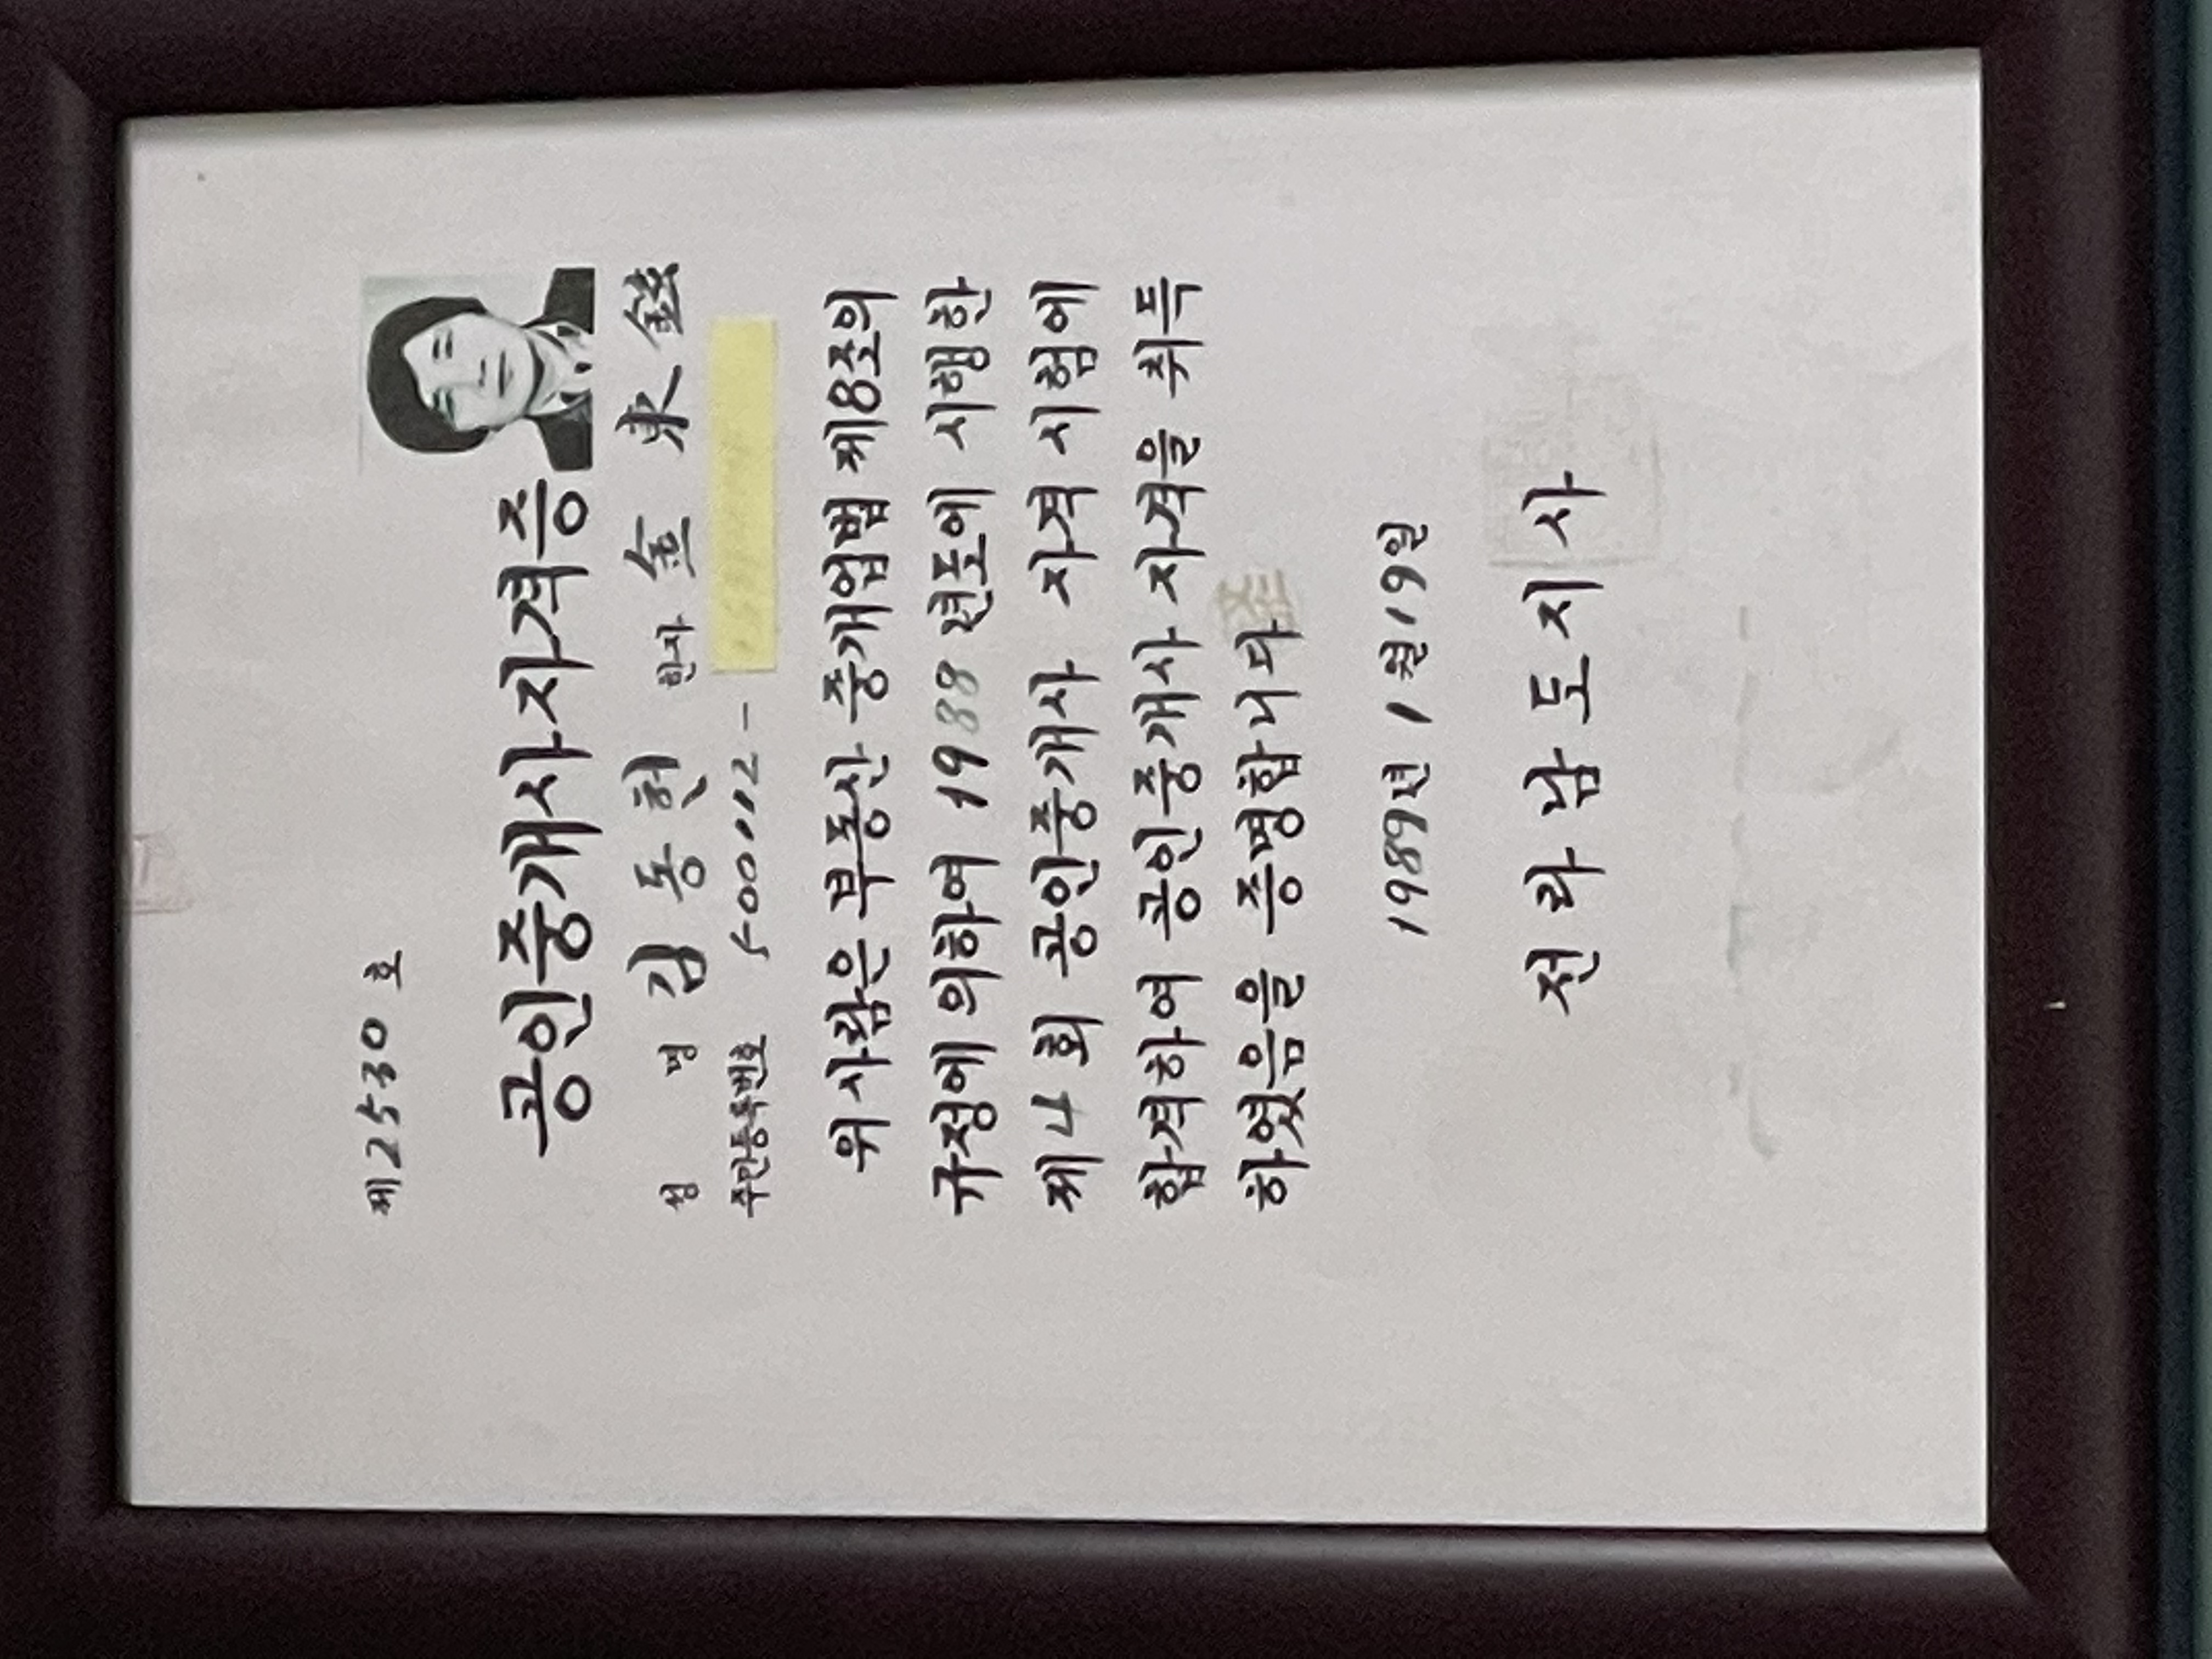 제2530 호
공인중개사자격증
성 명 김 동 현 한자 金 東 鉉
주민등록번호 500112 -
위 사람은 부동산 중개업법 제8조의
규정에 의하여 1988 년도에 시행한
제4회 공인중개사 자격 시험에
합격하여 공인중개사 자격을 취득
하였음을 증명합니다
1989년 1월19일
전라남도지사